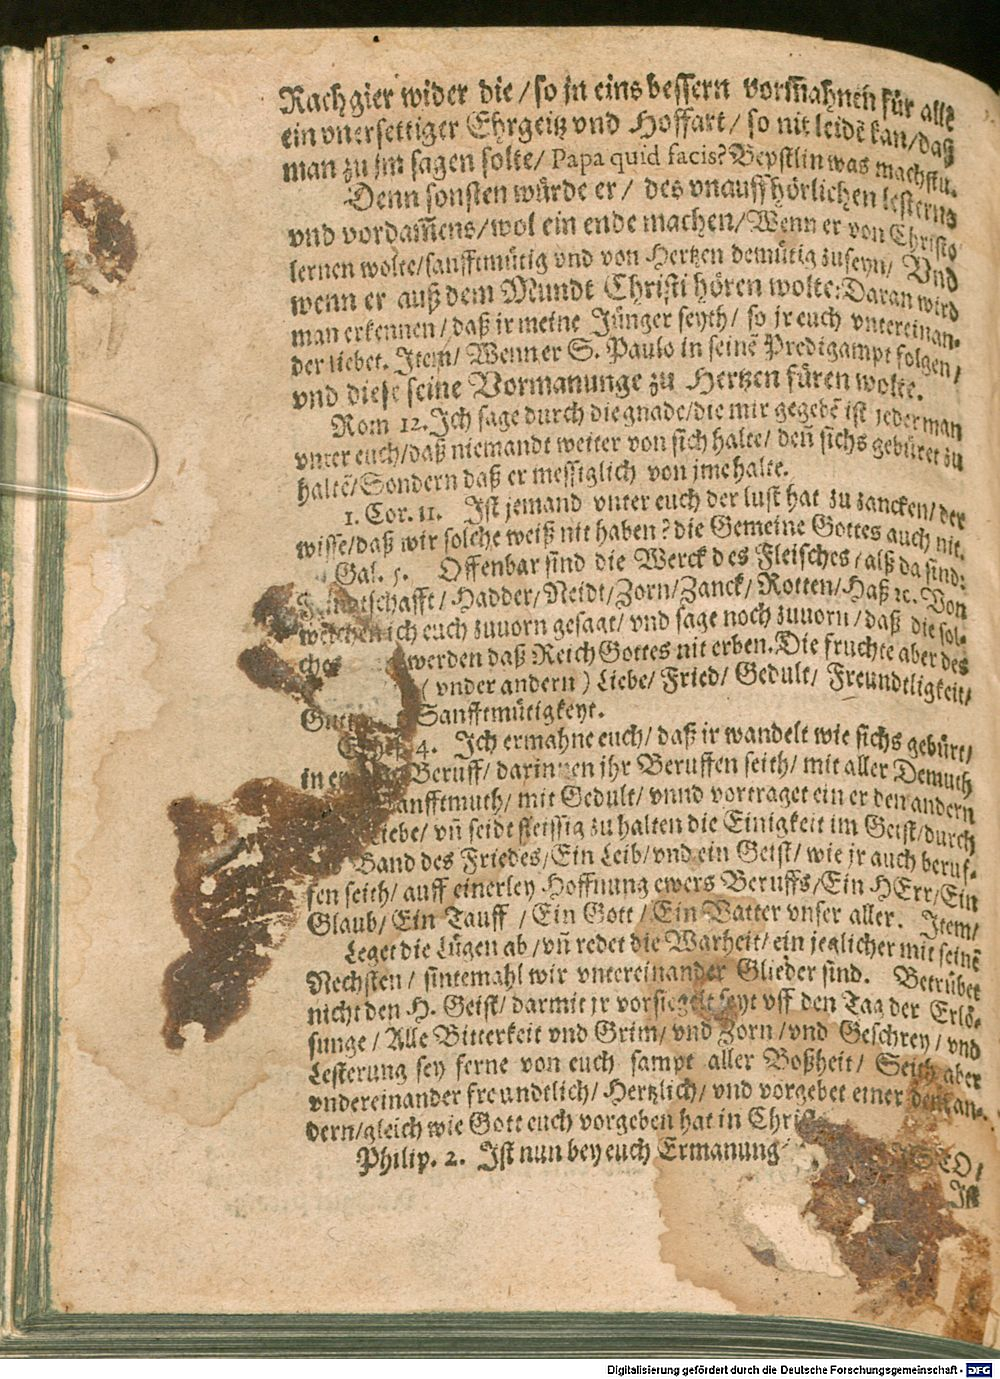 Rachgier wider die / so jn eins bessern vorm̃ahnen für alle
ein vnersettiger Ehrgeitz vnd Hoffart / so nit leidẽ kan / daß
man zu jm sagen solte / Papa quid facis? Bepstlin was machstu.
Denn sonsten würde er / des vnauffhörlichen lesterns
vnd vordam̃ens / wol ein ende machen / Wenn er von Christo
lernen wolte / sanfftmütig vnd von Hertzen demütig zuseyn / Vnd
wenn er auß dem Mundt Christi hören wolte: Daran wird
man erkennen / daß ir meine Jünger seyth / so jr euch vntereinan-
der liebet. Item / Wenn er S. Paulo in seinẽ Predigampt folgen /
vnd diese seine Vormanunge zu Hertzen füren wolte.
Rom 12. Ich sage durch die gnade / die mir gegebẽ ist jederman
vnter euch / daß niemandt weiter von sich halte / deñ sichs gebüret zu
haltẽ / Sondern daß er messiglich von jme halte.
1. Cor. 11. Ist jemand vnter euch der lust hat zu zancken / der
wisse / daß wir solche weiß nit haben? die Gemeine Gottes auch nit.
Gal. 5. Offenbar sind die Werck des Fleisches / alß da sind:
Hadder / Neidt / Zorn / Zanck / Rotten / Haß ꝛc. Von
welchen ich euch zuuorn gesagt / vnd sage noch zuuorn / daß die sol-
ches werden daß Reich Gottes nit erben. Die fruchte aber des
( vnder andern ) Liebe / Fried / Gedult / Freundtligkeit /
Sanfftmütigkeyt.
4. Ich ermahne euch / daß ir wandelt wie sichs gebürt /
in Beruff / darinnen ihr Beruffen seith / mit aller Demuth
Sanfftmuth / mit Gedult / vnnd vortraget ein er den andern
Liebe / vñ seidt fleissig zu halten die Einigkeit im Geist / durch
Band des Friedes / Ein Leib / vnd ein Geist / wie jr auch beruf-
fen seith / auff einerley Hoffnung ewers Beruffs / Ein HErr / Ein
Glaub / Ein Tauff / Ein Gott / Ein Vatter vnser aller. Item /
Leget die Lügen ab / vñ redet die Warheit / ein jeglicher mit seinẽ
Nechsten / sintemahl wir vntereinander Glieder sind. Betrübet
nicht den H. Geist / darmit jr vorsiegelt seyt vff den Tag der Erlö-
sunge / Alle Bitterkeit vnd Grim / vnd Zorn / vnd Geschrey / vnd
Lesterung sey ferne von euch sampt aller Boßheit / Seith aber
vndereinander freundtlich / Hertzlich / vnd vorgebet einer dem an-
dern / gleich wie Gott euch vorgeben hat in Chri
Philip. 2. Ist nun bey euch Ermanung STO,
Ist
Digitalisierung gefördert durch die Deutsche Forschungsgemeinschaft - DFG